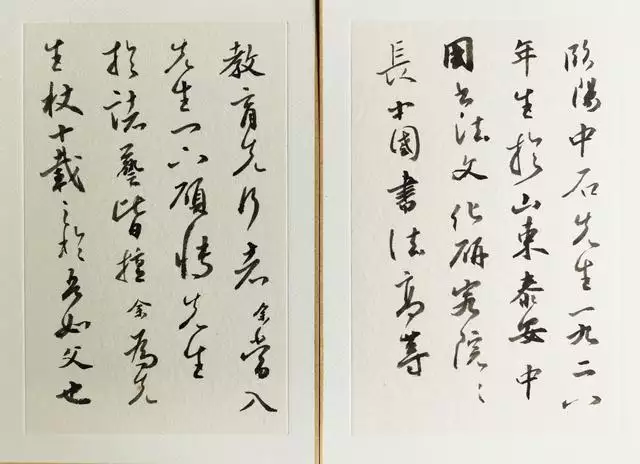 歐陽中石先生一九二八
年生於山東泰安中
國書法文化研究院〻
長中國書法高等
教育先行者余嘗入
先生門下碩博先生
於諸藝皆擅余為先
生杖十載之於吾如父也